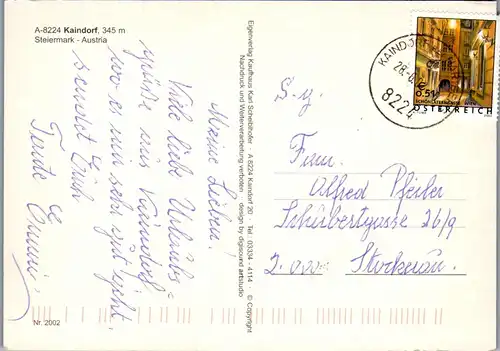 A-8224 Kaindorf, 345 m
Steiermark - Austria
Meine Lieben!
Viele liebe Urlaubs=
grüße aus Kaindorf
wo es mir sehr gut geht.
sendet Euch
Tante
Nr. 2002
Eigenverlag Kaufhaus Karl Scheiblhofer · A-8224 Kaindorf 20 · Tel. 03334 - 4114 © Copyright
Nachdruck und Weiterverarbeitung verboten design by digisound artstudio
KAINDORF
28.
8224
0,51
ÖSTERREICH
Fam.
Alfred Pfeiler
Schubertgasse 26/9
2000 Stockerau